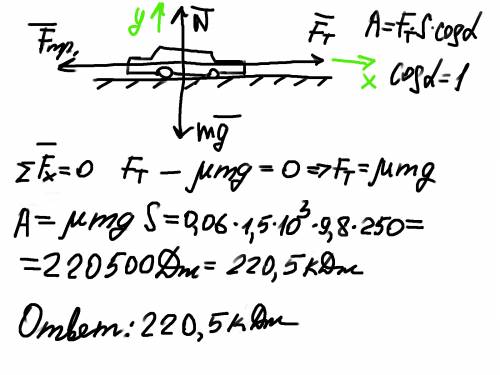 y N̅ F̅т A=FтS·cosα
F̅тр. x cosα=1
mg̅
ΣF̅x=0 Fт − μmg=0 ⇒ Fт=μmg
A=μmg S=0,06·1,5·10³·9,8·250=
=220500Дж=220,5кДж
Ответ: 220,5кДж